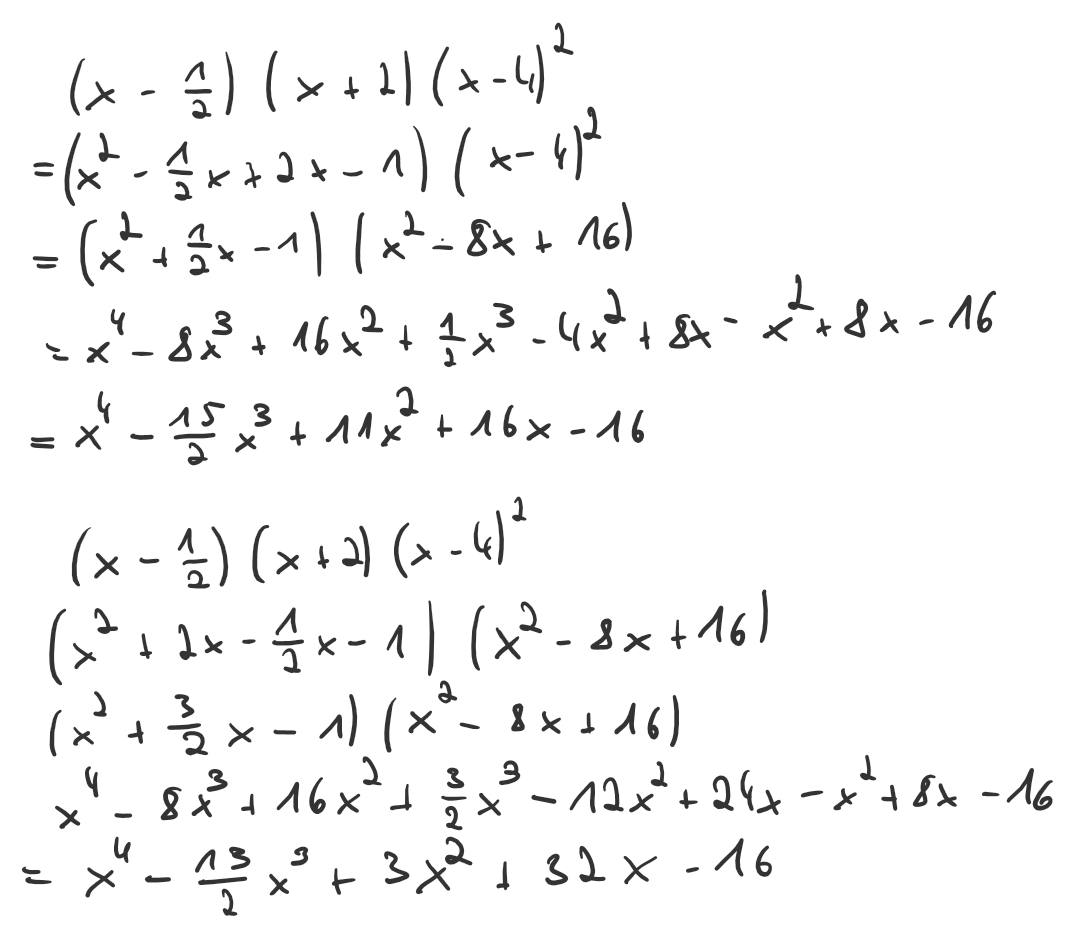 (x - 1/2) (x + 2) (x - 4)²
= (x² - 1/2 x + 2x - 1) (x - 4)²
= (x² + 1/2 x - 1) (x² - 8x + 16)
= x⁴ - 8x³ + 16x² + 1/2 x³ - 4x² + 8x - x² + 8x - 16
= x⁴ - 15/2 x³ + 11x² + 16x - 16
(x - 1/2) (x + 2) (x - 4)²
(x² + 2x - 1/2 x - 1) (x² - 8x + 16)
(x² + 3/2 x - 1) (x² - 8x + 16)
x⁴ - 8x³ + 16x² + 3/2 x³ - 12x² + 24x - x² + 8x - 16
= x⁴ - 13/2 x³ + 3x² + 32x - 16